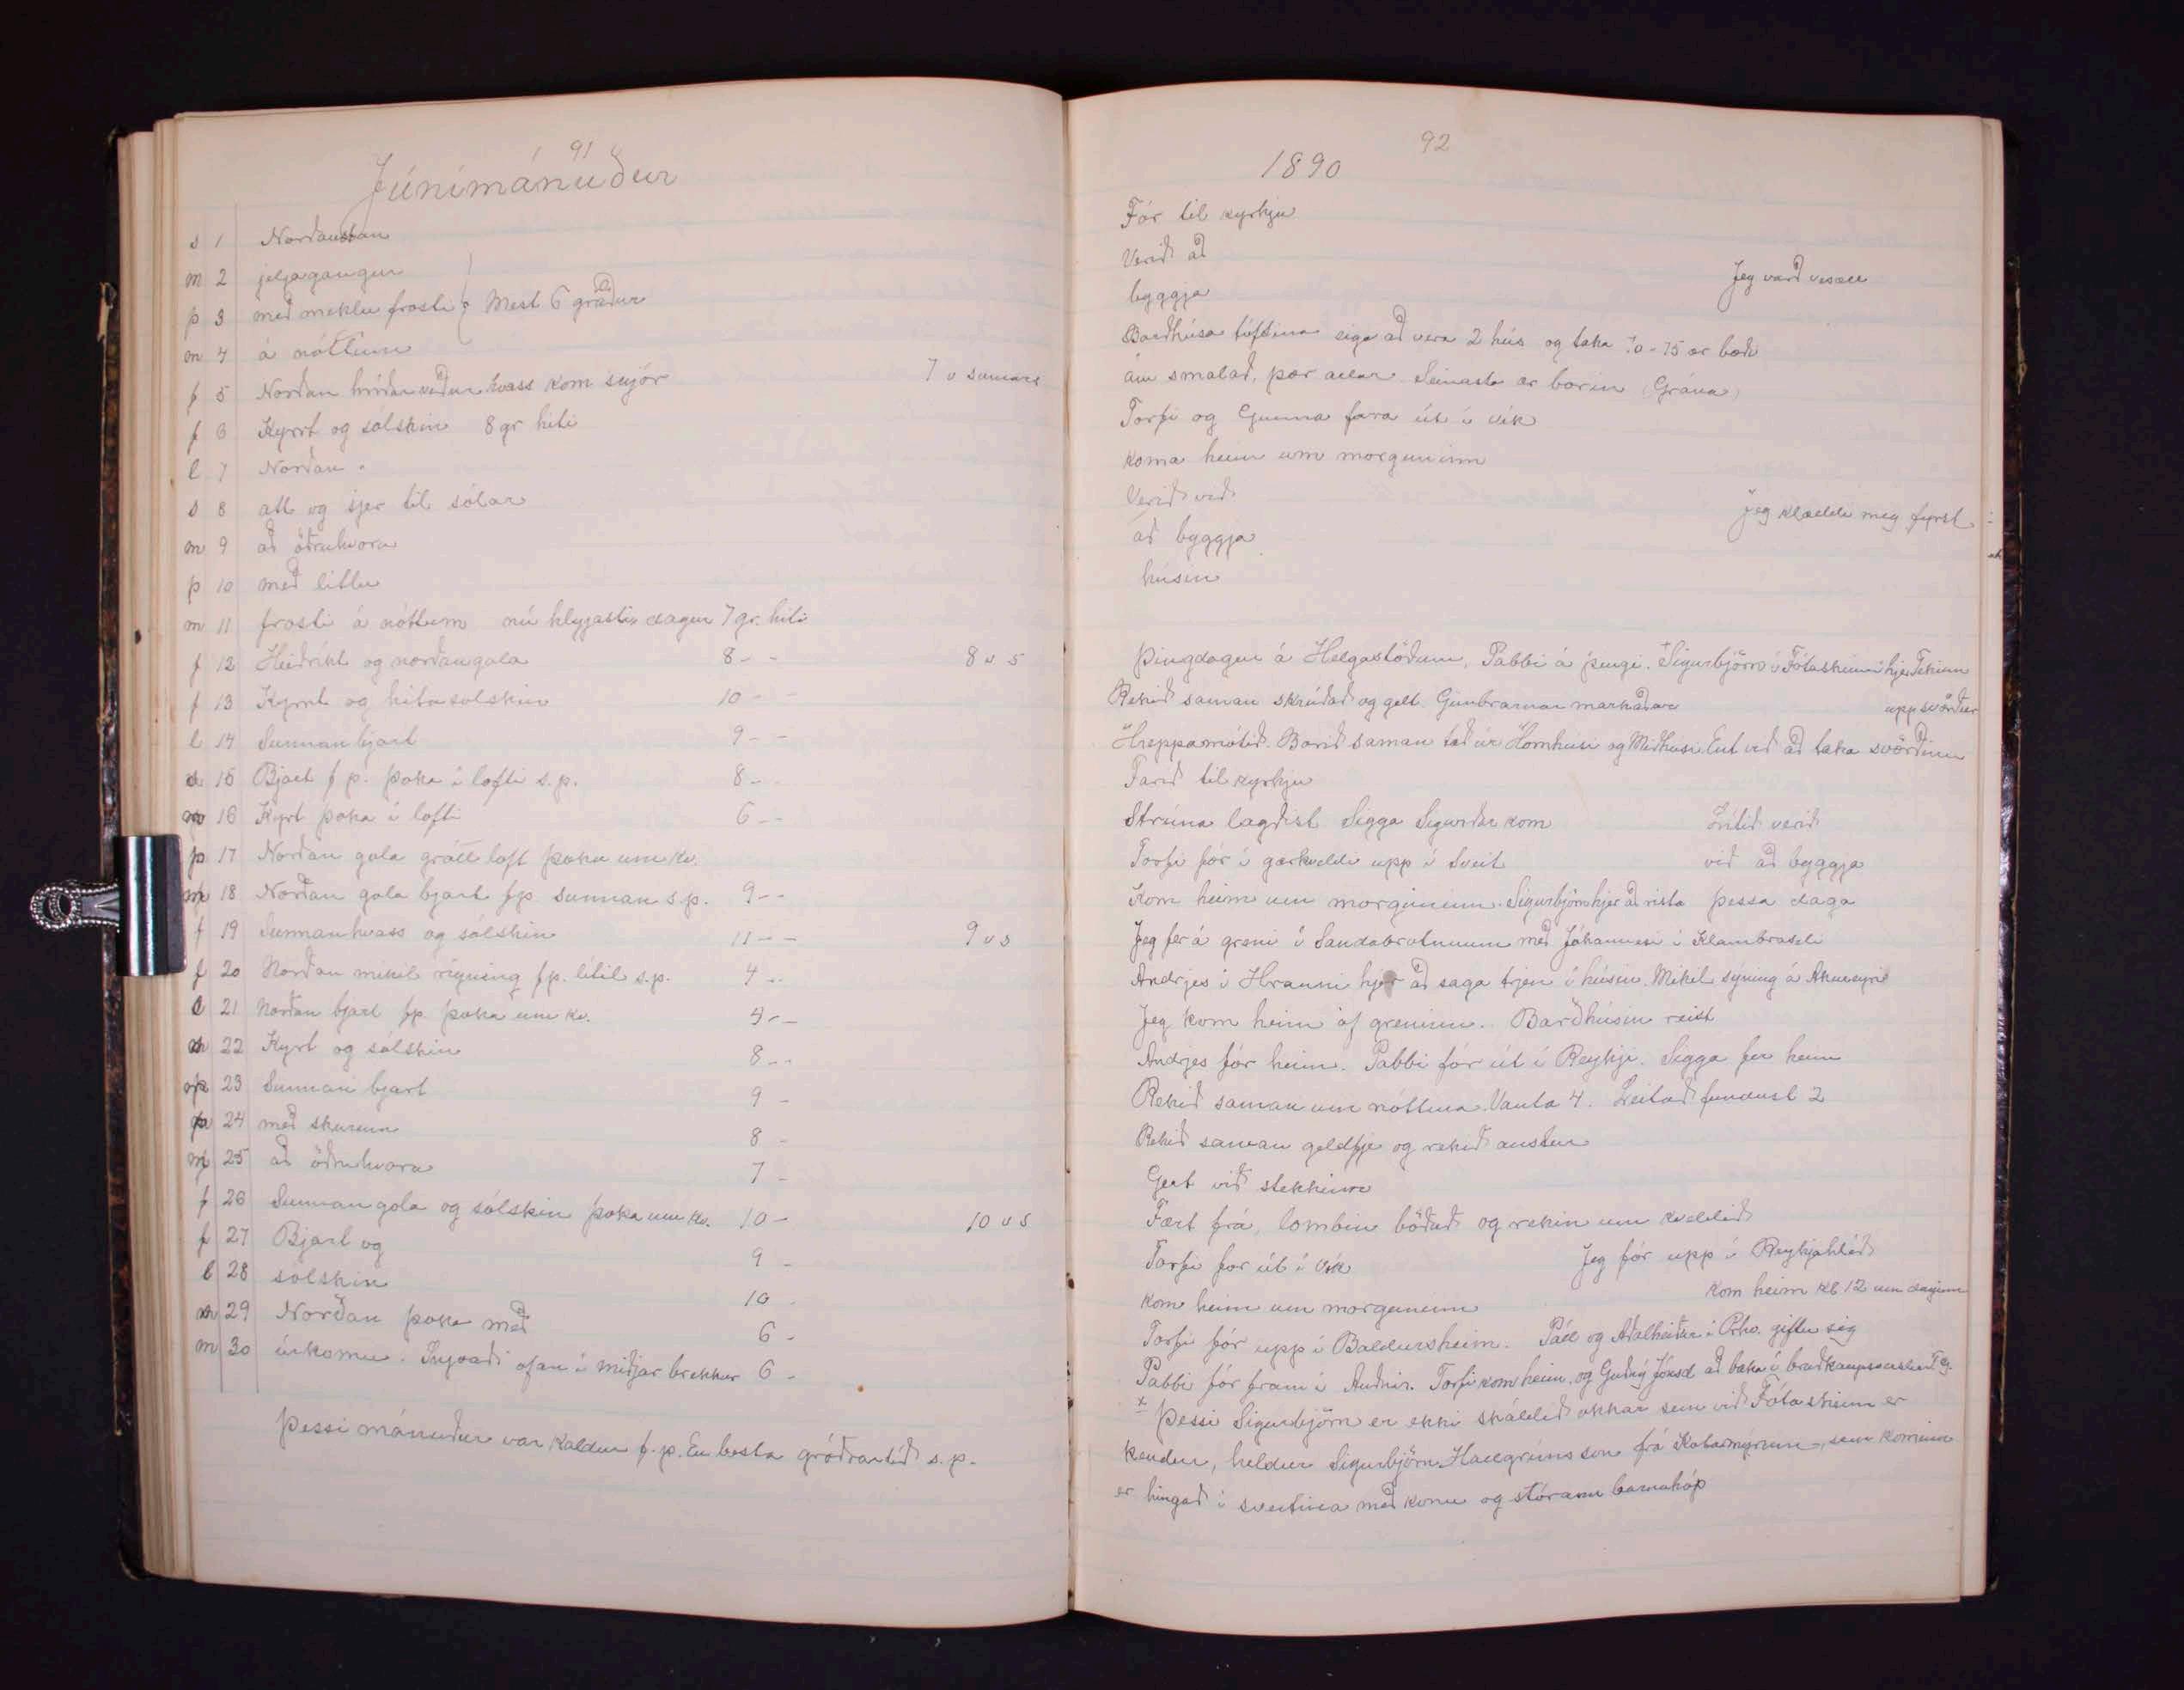 91
Júnímánuður
s 1 Norðaustan
m 2 jeljagangur
þ 3 með miklu frosti Mest 6 gráður
m 4 á nóttum
f 5 Norðan hríðarveður hvass kom snjór 7 v sumars
f 6 Kyrrt og sólskin 8 gr hiti
l 7 Norðan
s 8 átt og sjer til sólar
m 9 að öðruhvoru
þ 10 með litlu
m 11 frosti á nóttum nú hlyjasti dagur 7 gr. hiti
f 12 Heiðríkt og norðangola 8 - - 8 v s
f 13 Kyrrt og hitasolskin 10 - -
l 14 Sunnan bjart 9 - -
s 15 Bjart f p. þoka í lofti s.p. 8 - -
m 16 Kyrt þoka í lofti 6 - -
þ 17 Norðan gola grátt loft þoka um kv.
m 18 Norðan gola bjart fp sunnan s.p. 9 - -
f 19 Sunnan hvass og sólskin 11 - - 9 v s
f 20 Norðan mikil rigning fp. lítil s.p. 4 - -
l 21 Norðan bjart fp. þoka um kv. 4 - -
s 22 Kyrt og sólskin 8 - -
m 23 Sunnan bjart 9 -
þ 24 með skurum 8 -
m 25 að öðruhvoru 7 -
f 26 Sunnan gola og sólskin þoka um kv. 10 - 10 v s
f 27 Bjart og 9 -
l 28 solskin 10 -
s 29 Norðan þoka með 6 -
m 30 úrkomu. Snjoaði ofan í miðjar brekkur 6 -
Þessi mánuður var kaldur f.p. En besta gróðrartíð s.p.
92
1890
Fór til kyrkju
Verið að
byggja Jeg varð vesæll
Barðhúsa tóftina eiga að vera 2 hús og taka 70-75 ær bæði
ám smalað, þær allar. Seinasta ær borin (Grána)
Torfi og Gunna fara út í vík
koma heim um morguninn
Verið við Jeg klæddi mig fyrst
að byggja
húsin
Þingdagur á Helgastöðum, Pabbi á þingi. + Sigurbjörn í Fótaskinni hjer Tekinn
Rekið saman skrúðað og gelt. Gimbrarnar markaðar upp svörður
Hreppamótið. Borið saman tað úr Hornhúsi og Miðhúsi Ent við að taka svörðinn
Farið til kyrkju
Strúna lagðist Sigga Sigurðar kom Lítið verið
Torfi fór í gærkveldi upp í Sveit við að byggja
Kom heim um morguninn. Sigurbjörn hjer að rista þessa daga
Jeg fer á greni í Sandabrotunum með Jóhannesi í Klambraseli
Andrjes í Hrauni hjer að saga trjen í húsin. Mikil sýning á Akureyri
Jeg kom heim af greninu. Barðhúsin reist
Andrjes fór heim. Pabbi fór út í Reyki. Sigga fer heim
Rekið saman um nóttina. Vanta 4. Leitað fundust 2
Rekið saman geldfje og rekið austur
Gert við stekkinn
Fært frá, lombin böðuð og rekin um kveldið
Torfi for út í Vík Jeg fór upp í Reykjahlíð
kom heim um morguninn kom heim kl 12 um daginn
Torfi fór upp í Baldursheim. Páll og Aðalheiður í Prhv. giftu sig
Pabbi fór fram í Auðnir. Torfi kom heim, og Guðný Jónsd að baka í
x Þessi Sigurbjörn er ekki skáldið okkar sem við Fótaskinn er
kendur, heldur Sigurbjörn Hallgrímsson frá Kotamýrum, sem kominn
er hingað í sveitina með konu og stórann barnahóp